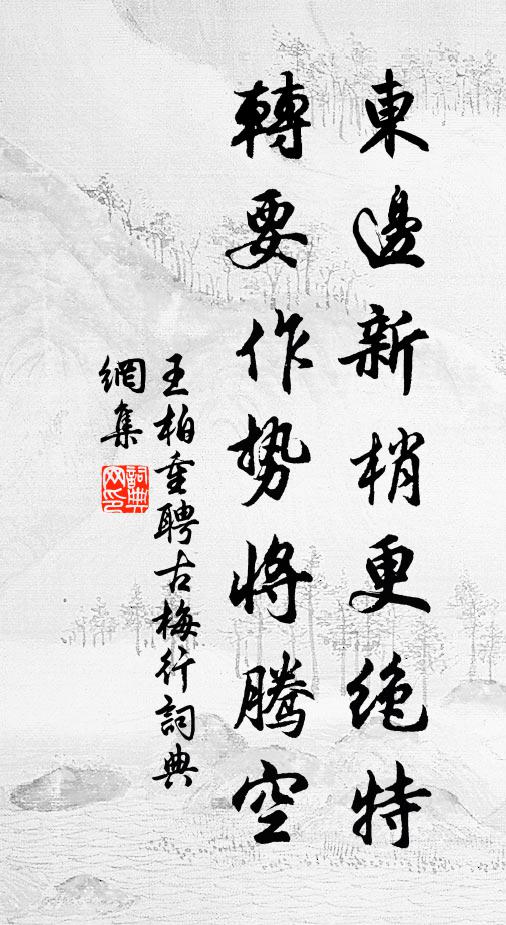 東邊新梢更絶特
轉要作勢將騰空
王柏重聘古梅行詞典
網集
詞典網印